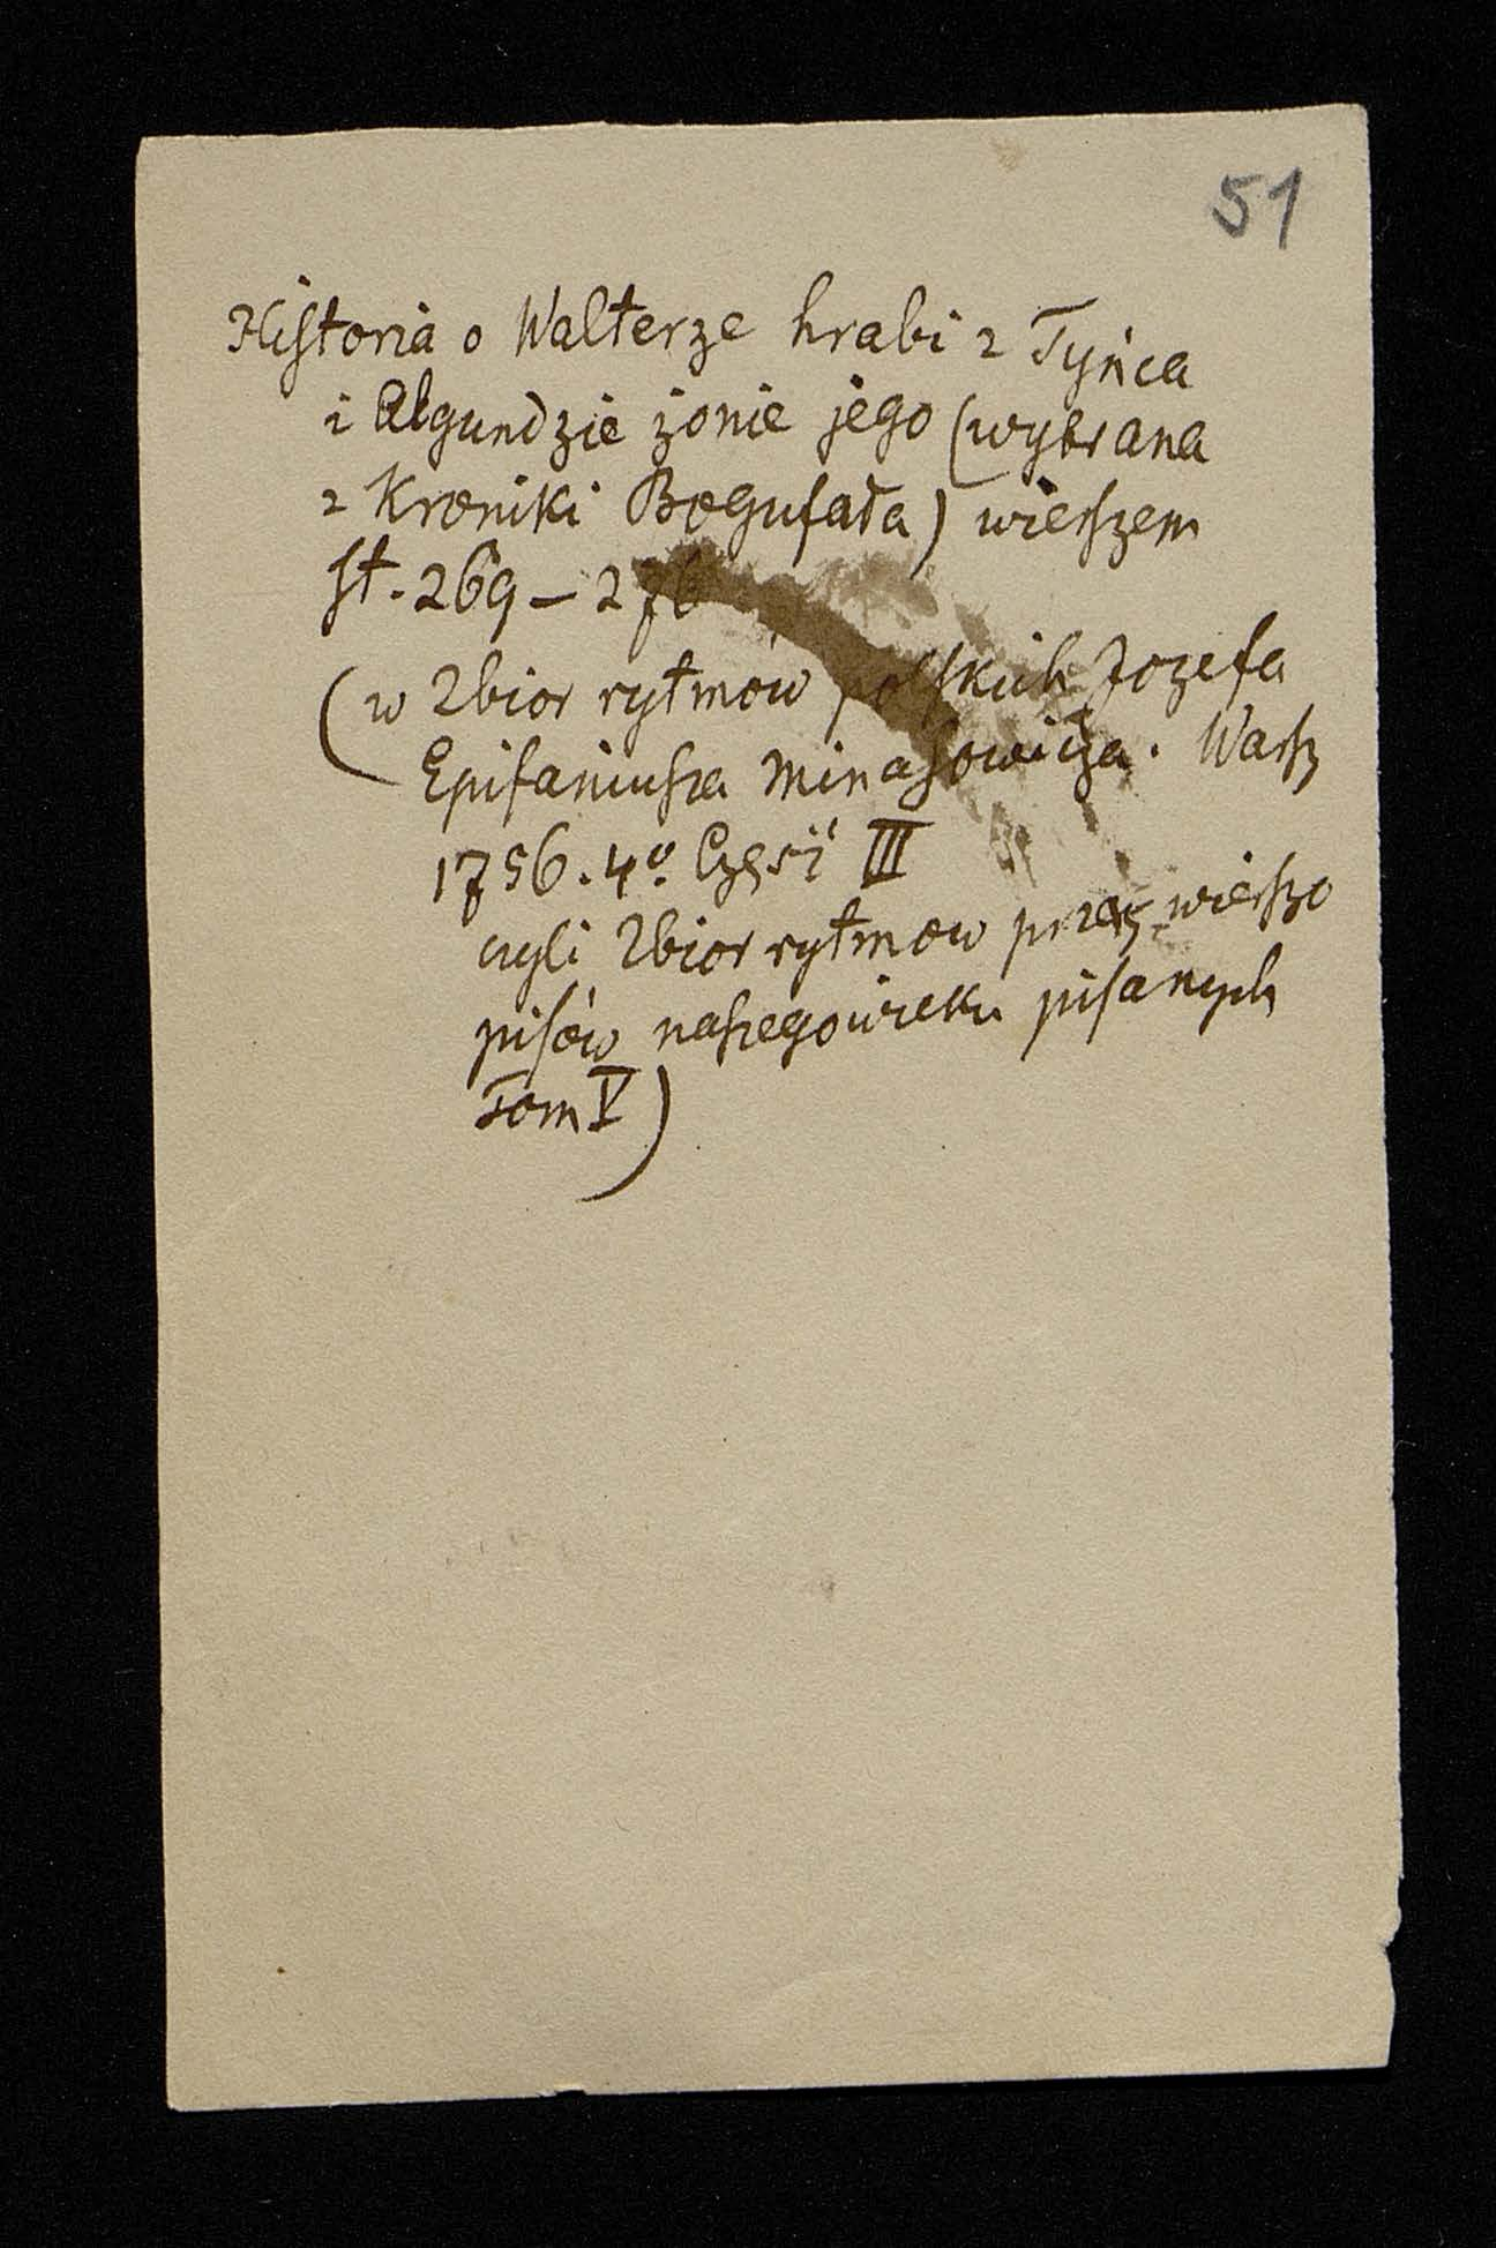 51
Historia o Walterze hrabi z Tyńca
i Algundzie żonie jego (wybrana
z Kroniki Bogufała) wierszem
st. 269 – 276
(w Zbior rytmów polskich Jozefa
Epifaniusza Minasowicza. Warsz
1756. 4o Część III
czyli Zbior rytmow przez wierszo
pisów naszego wieku pisanych
Tom V)